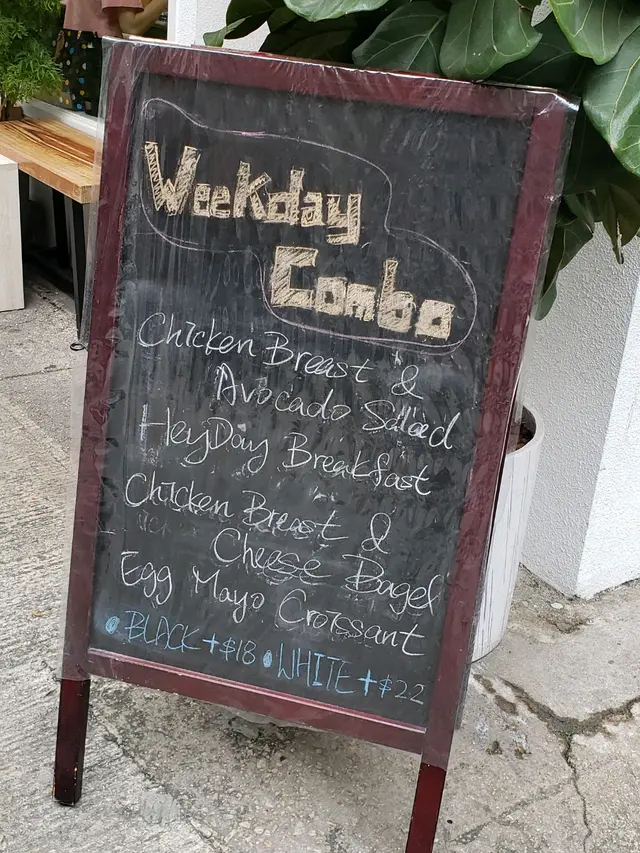 Weekday
Combo
Chicken Breast &
Avocado Salad
HeyDay Breakfast
Chicken Breast &
Cheese Bagel
Egg Mayo Croissant
• BLACK +$18 • WHITE +$22